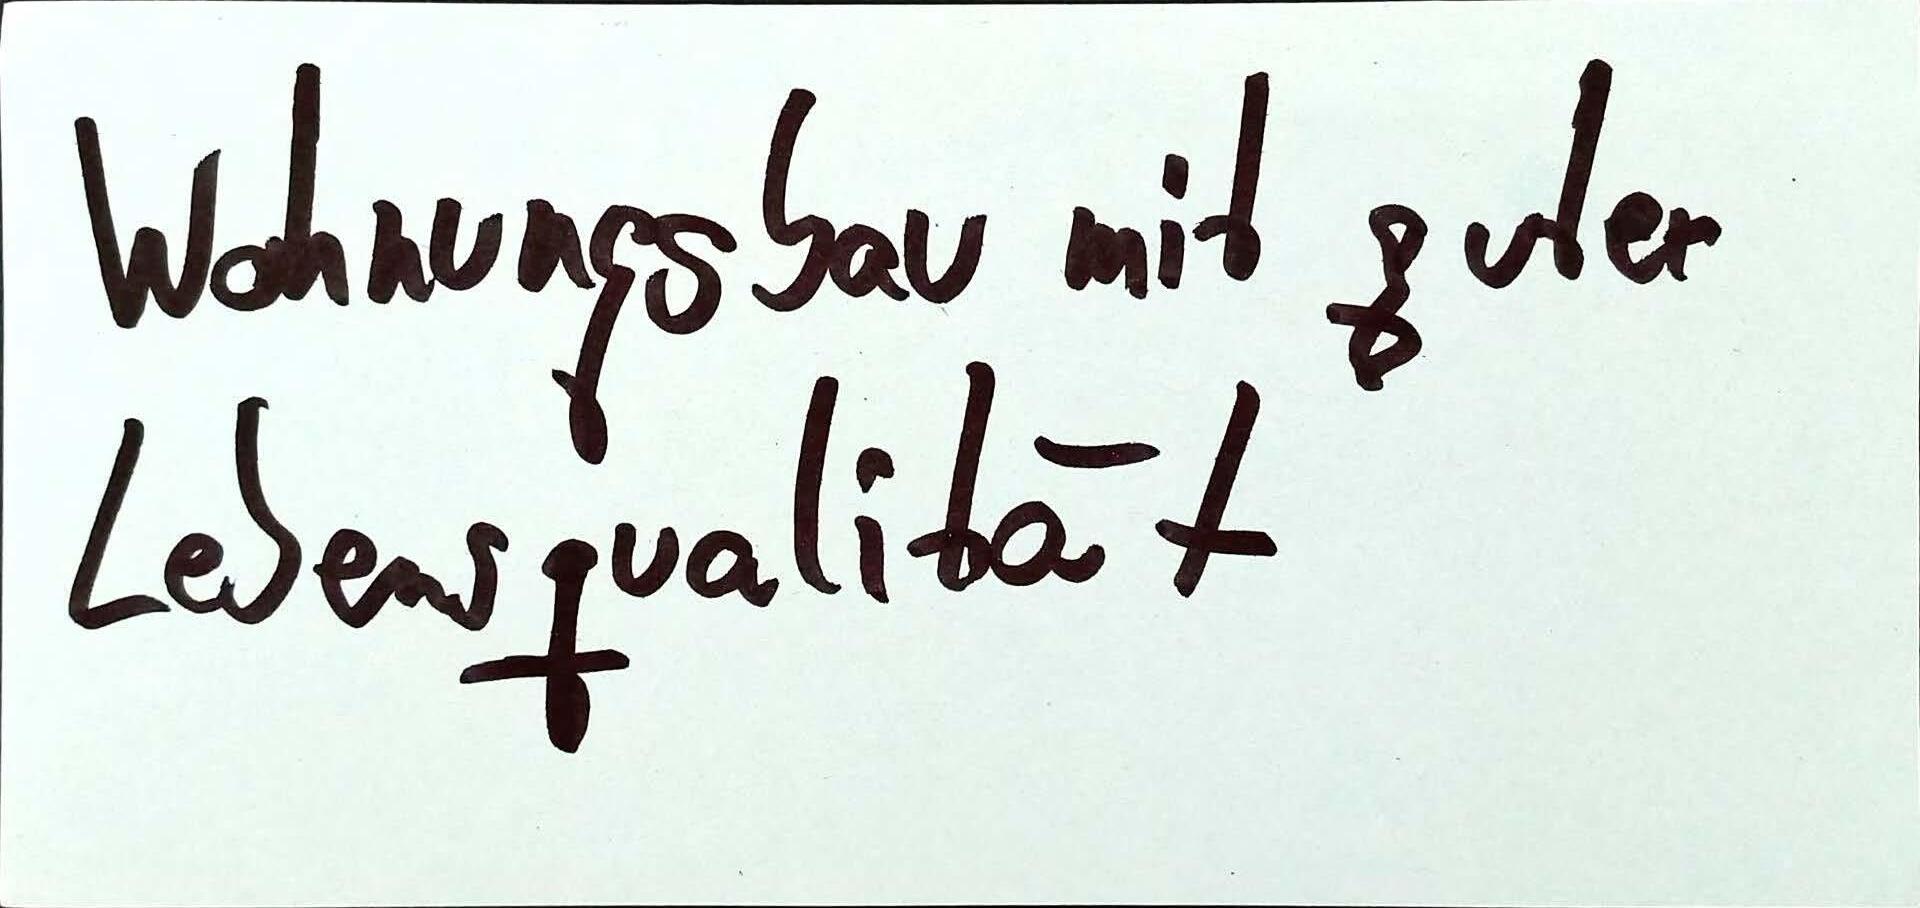 Wohnungsbau mit guter
Lebensqualität